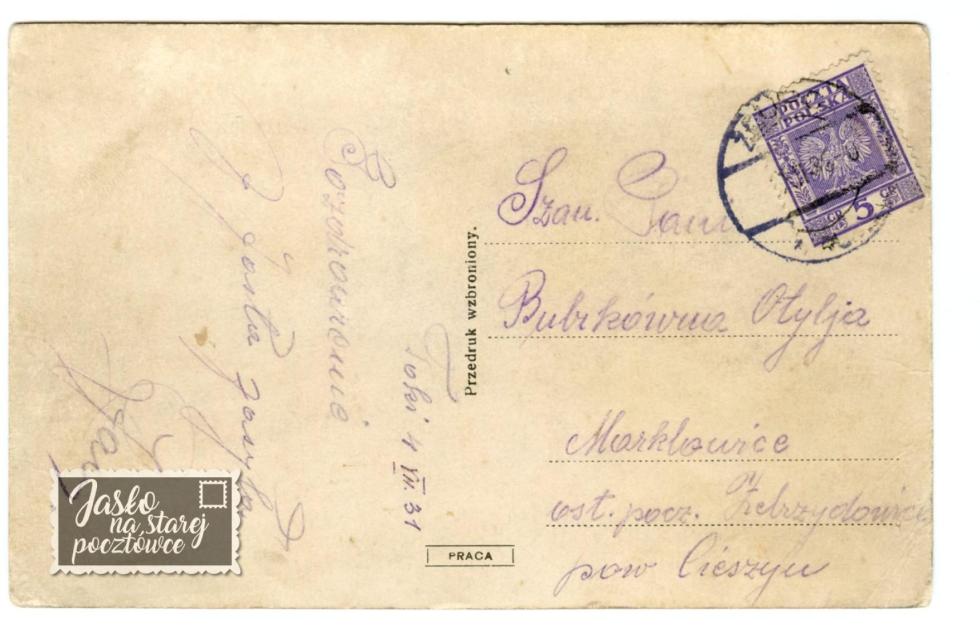 Toki 4 VII. 31
Pozdrowienie
zasyła
Przedruk wzbroniony.
PRACA
POCZTA
POLSKA
GR 5 GR
Szan. Pani
Otylja
Marklowice
ost. pocz. Zebrzydowice
pow Cieszyn
Jasło
na starej
pocztówce